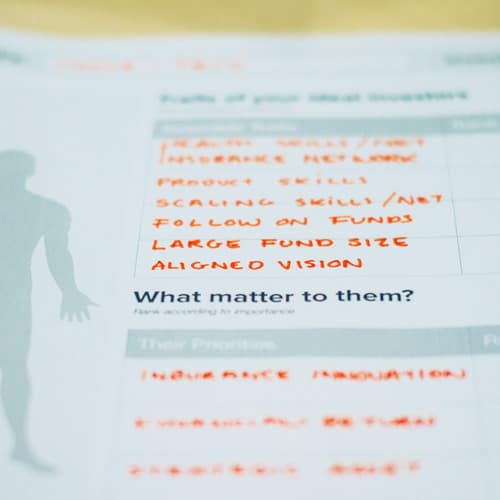 Traits of your ideal investors
HEALTH SKILLS/NET
INSURANCE NETWORK
PRODUCT SKILLS
SCALING SKILLS/NET
FOLLOW ON FUNDS
LARGE FUND SIZE
ALIGNED VISION
What matter to them?
Rank according to importance
Their Priorities
INSURANCE INNOVATION
FINANCIAL RETURN
STRATEGIC